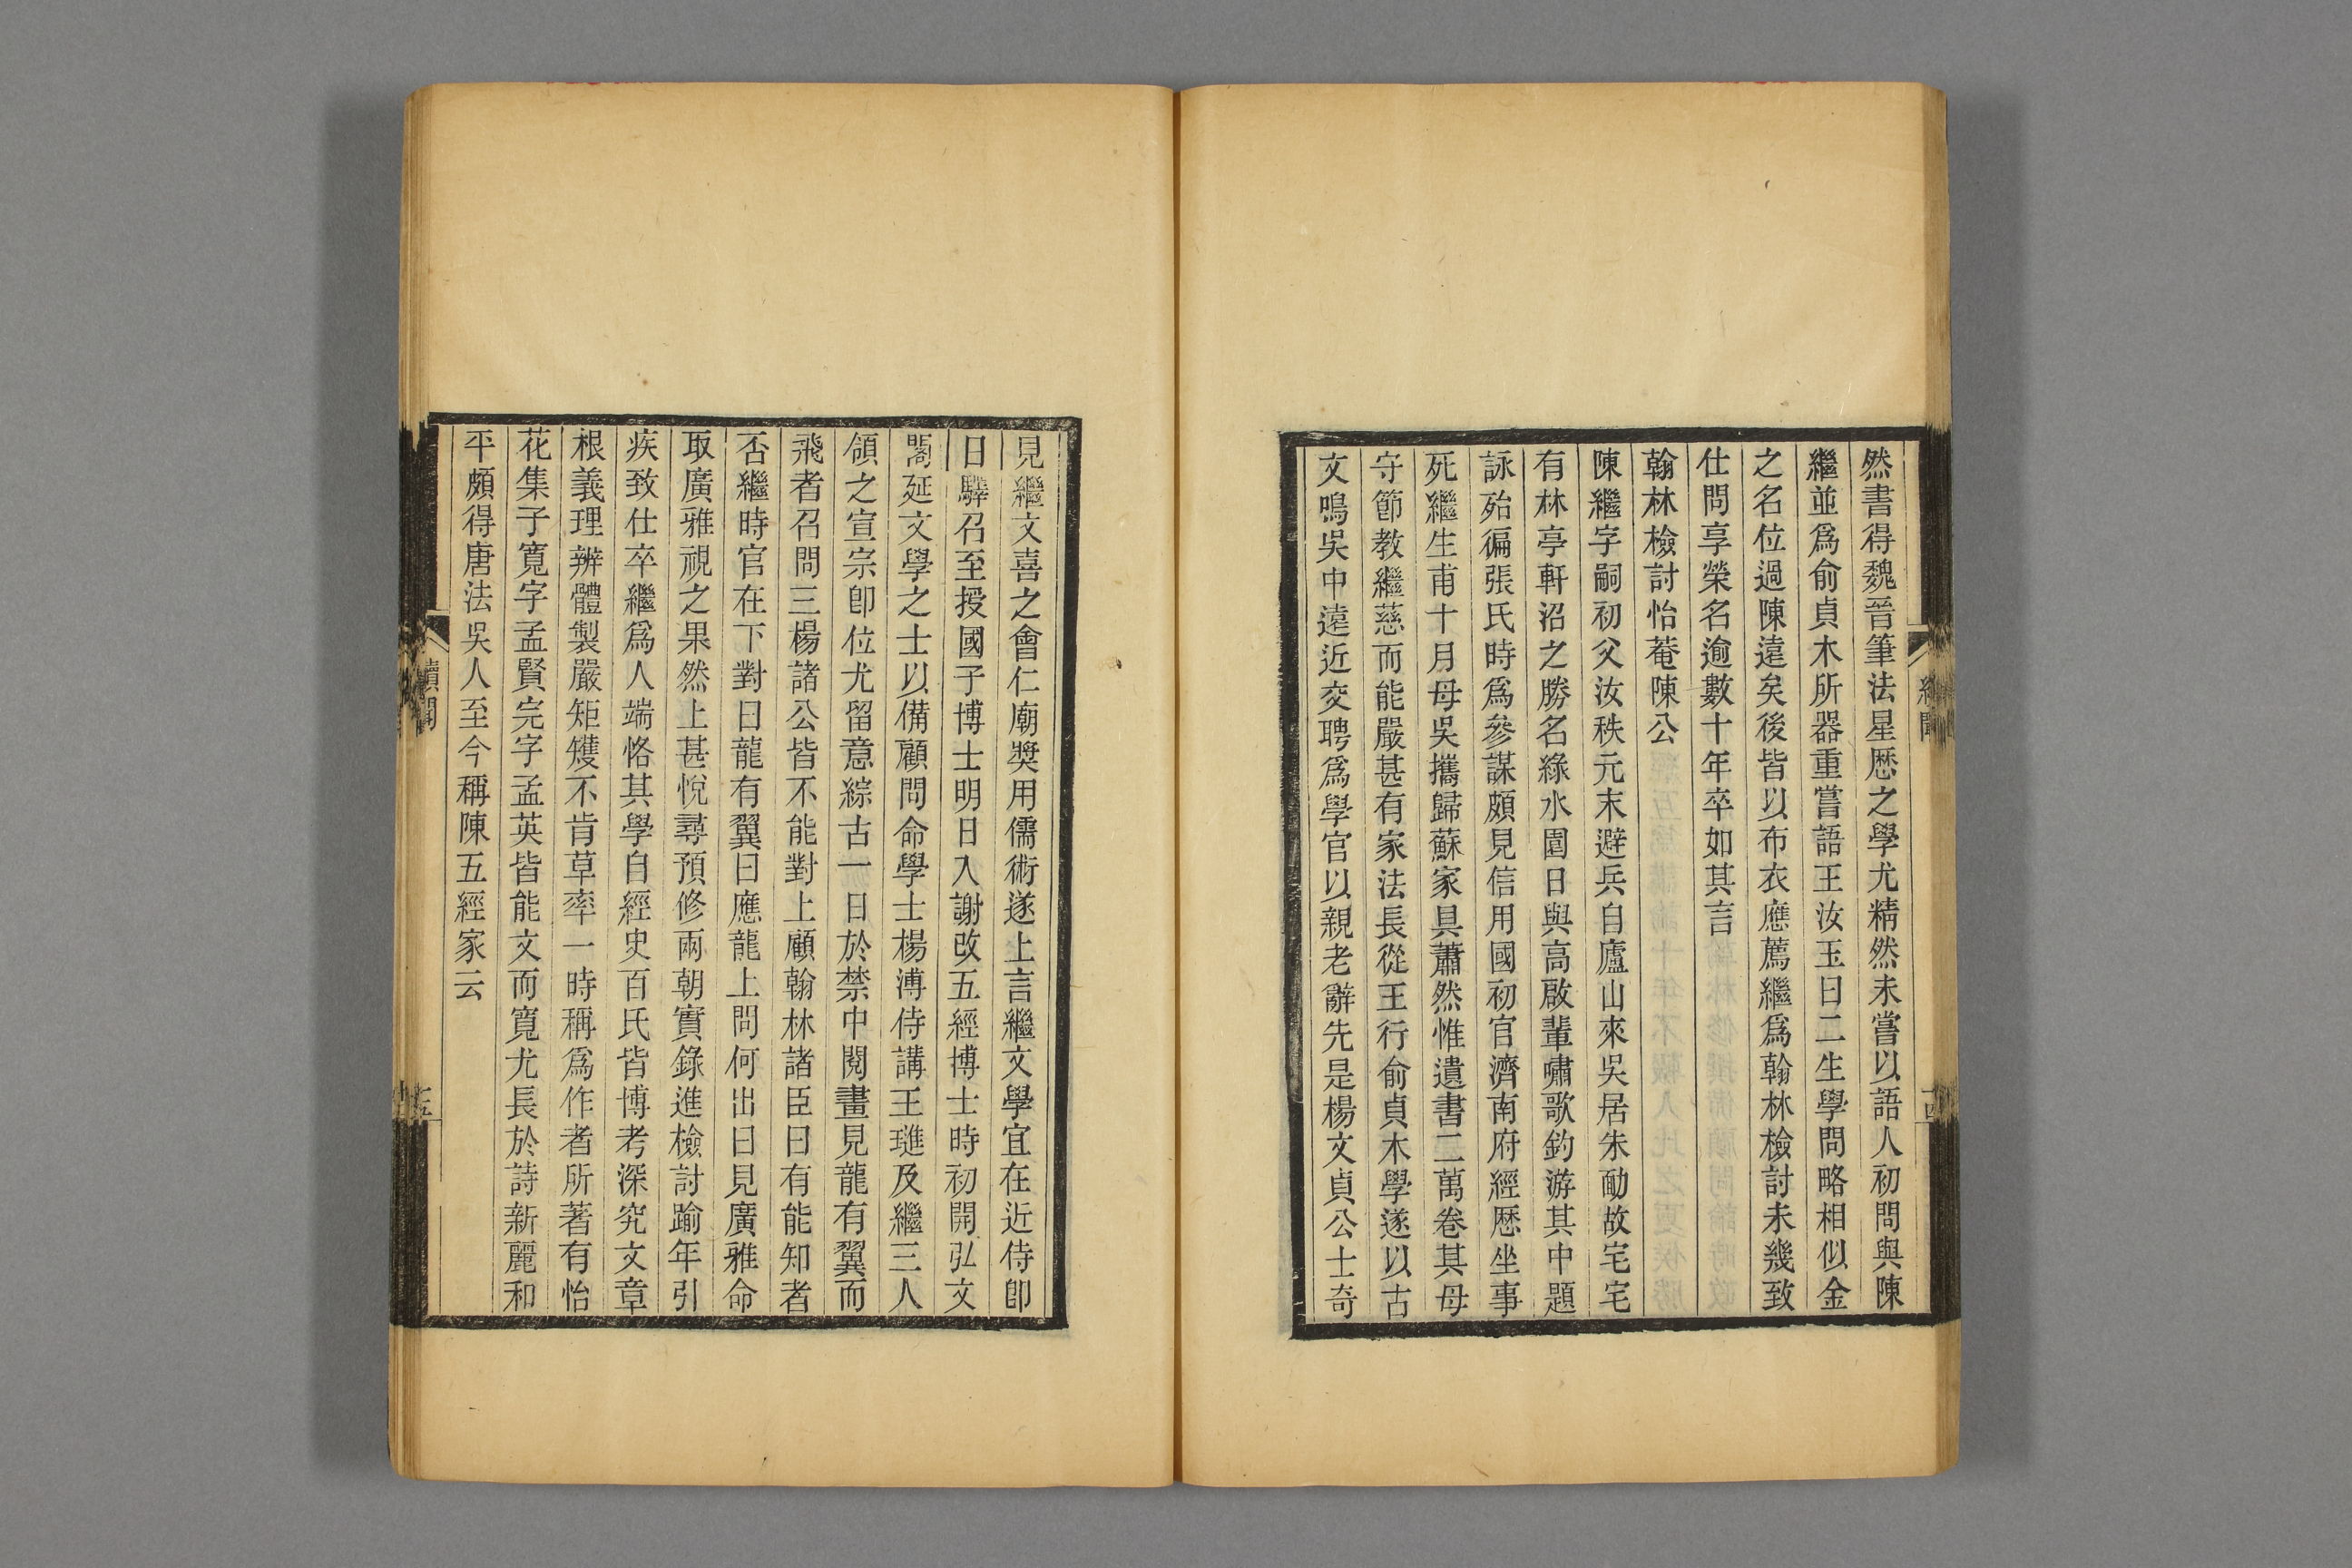 然書得魏晉筆法星厯之學尤精然未嘗以語人初問與陳
繼並爲俞貞木所器重嘗語王汝玉曰二生學問略相似金
之名位過陳遠矣後皆以布衣應薦繼爲翰林檢討未幾致
仕問享榮名逾數十年卒如其言
翰林檢討怡菴陳公
陳繼字嗣初父汝秩元末避兵自廬山來吳居朱勔故宅宅
有林亭軒沼之勝名綠水園日與高啟輩嘯歌釣游其中題
詠殆徧張氏時爲參謀頗見信用國初官濟南府經厯坐事
死繼生甫十月母吳攜歸蘇家具蕭然惟遺書二萬卷其母
守節教繼慈而能嚴甚有家法長從王行俞貞木學遂以古
文鳴吳中遠近交聘爲學官以親老辭先是楊文貞公士奇
見繼文喜之會仁廟奬用儒術遂上言繼文學宜在近侍卽
日驛召至授國子博士明日入謝改五經博士時初開弘文
閣延文學之士以備顧問命學士楊溥侍講王璡及繼三人
領之宣宗卽位尤留意綜古一日於禁中閱畫見龍有翼而
飛者召問三楊諸公皆不能對上顧翰林諸臣曰有能知者
否繼時官在下對曰龍有翼曰應龍上問何出曰見廣雅命
取廣雅視之果然上甚悅尋預修兩朝實錄進檢討踰年引
疾致仕卒繼爲人端恪其學自經史百氏皆博考深究文章
根義理辨體製嚴矩矱不肯草率一時稱爲作者所著有怡
花集子寬字孟賢完字孟英皆能文而寬尤長於詩新麗和
平頗得唐法吳人至今稱陳五經家云